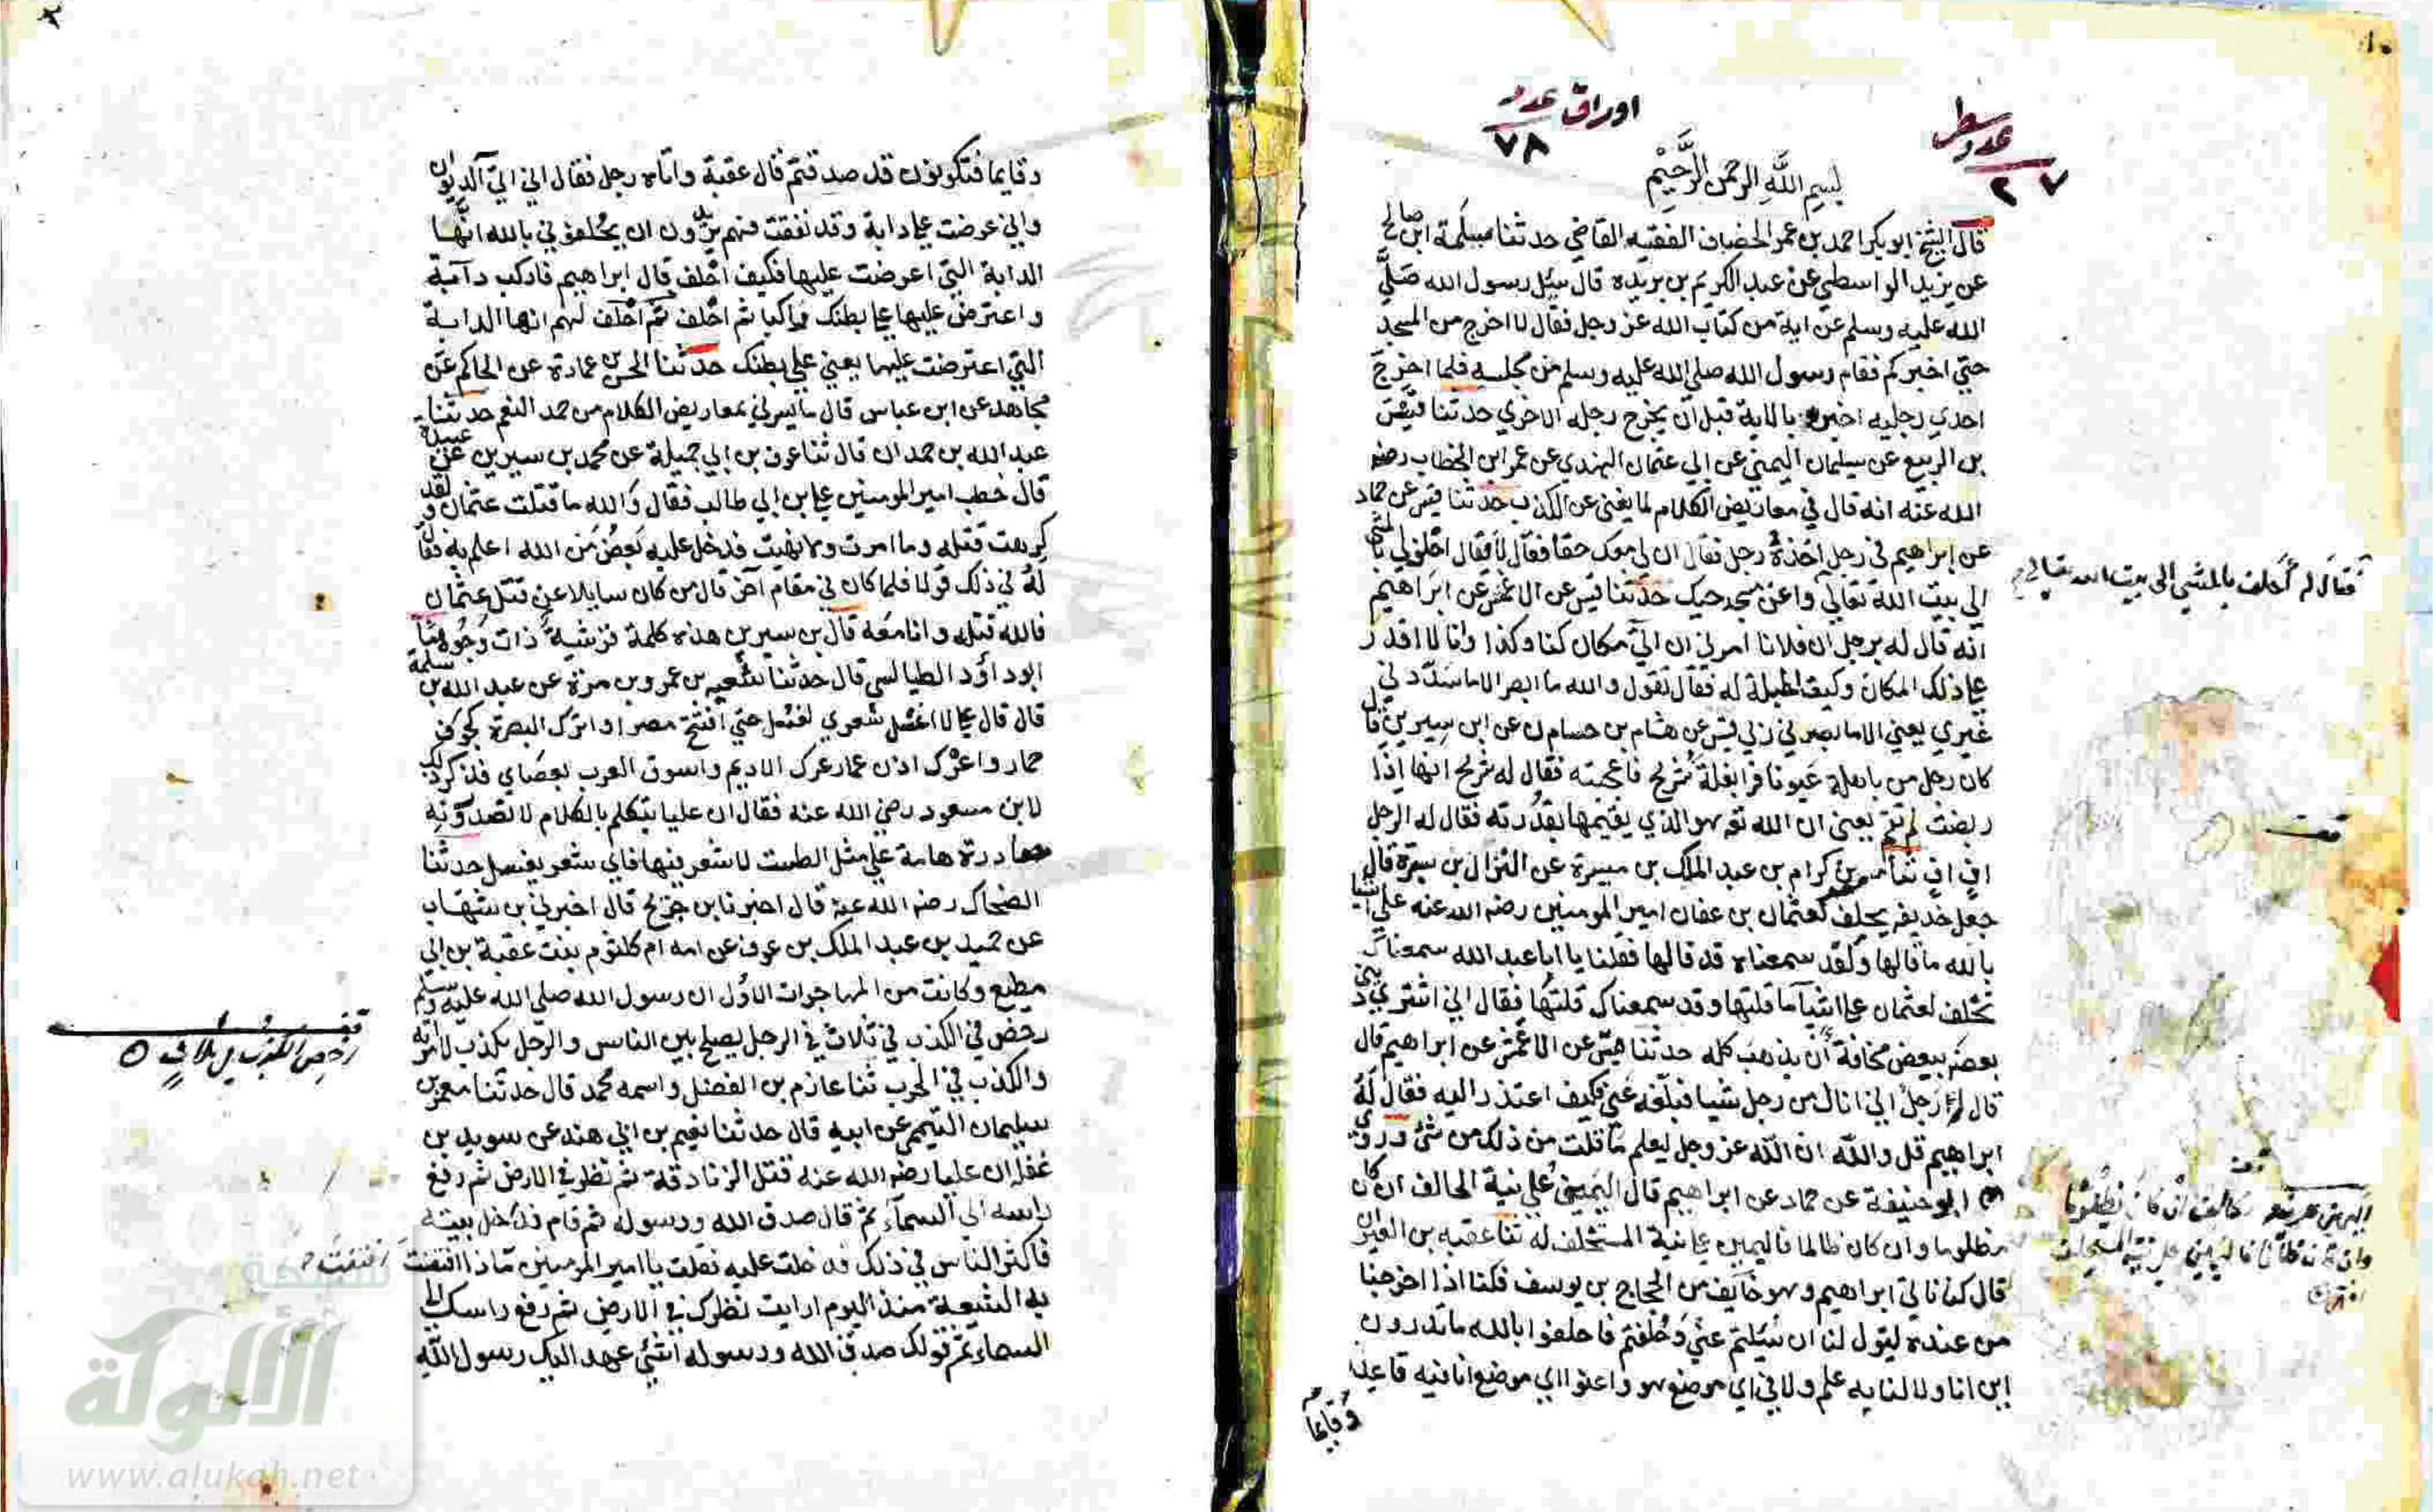 اوراق عدد
٧٨
عدد سطر
٢٧
بسم الله الرحمن الرحيم
قال الشيخ ابو بكر احمد بن عمر الخصاف الفقيه القاضي حدثنا مسلمة ابن صالح
عن يزيد الواسطي عن عبد الكريم بن بريده قال سئل رسول الله صلى
الله عليه وسلم عن اية من كتاب الله عز وجل فقال لا اخرج من المسجد
حتي اخبركم فقام رسول الله صلى الله عليه وسلم من مجلسه فلما اخرج
احدي رجليه اخبره بالاية قبل ان يخرج رجله الاخري حدثنا قيس
بن الربيع عن سليمان اليمني عن ابي عثمان النهدي عن عمر ابن الخطاب رضي
الله عنه انه قال في معاريض الكلام لما يغني عن الكذب حدثنا قيس عن حماد
عن ابراهيم في رجل اخذه رجل فقال ان لي معك حقا فقال لا فقال احلف لي بالمشي
الى بيت الله تعالى واعن مسجد حيك حدثنا قيس عن الاعمش عن ابراهيم
انه قال له رجل ان فلانا امرني ان اتي مكان كذا وكذا وانا لا اقدر
علي ذلك المكان وكيف الحيلة له فقال تقول والله ما ابصر الا ما سددني
غيري يعني الا ما بصرني ربي قيس عن هشام بن حسام عن ابن سيرين قال
كان رجل من باهلة عيونا فرا بغلة شريح فاعجبته فقال له شريح انها اذا
ربضت لم تقم يعني ان الله تع هو الذي يقيمها بقدرته فقال له الرجل
اف اف ثنا بن كرام بن عبد الملك بن ميسرة عن النزال بن سبرة قال
جعل حذيفه يحلف لعثمان بن عفان امير المومنين رضي الله عنه علي اشيا
بالله ما قالها ولقد سمعناه قد قالها فقلنا يا ابا عبد الله سمعناك
تحلف لعثمان علي اشيآ ما قلتها وقد سمعناك قلتها فقال اني اشتري ديني
بعضه ببعض مخافة ان يذهب كله حدثنا قيس عن الاعمش عن ابراهيم قال
قال له رجل اني انال من رجل شيا فبلغه عني فكيف اعتذر اليه فقال له
ابراهيم قل والله ان الله عز وجل ليعلم ما قلت من ذلك من شئ وروي
ابو حنيفة عن حماد عن ابراهيم قال اليمين علي نية الحالف ان كان
مظلوما وان كان ظالما فاليمين علي نية المستحلف له ثنا عقبه بن العيزار
قال كنا ناتي ابراهيم وهو خايف من الحجاج بن يوسف فكنا اذا اخرجنا
من عنده ليقول لنا ان سئلتم عني وحلفتم فاحلفوا بالله ما تدرون
اين انا ولا لنا به علم ولا في اي موضع هو واعنوا اي موضع انا فيه قاعد
وقايما
فقال لم أحلف بالمشي الى بيت الله تعالي
وقايما فتكونون قد صدقتم قال عقبة واتاه رجل فقال اني اتي الديوان
واني عرضت علي دابة وقد نفقت فهم يريدون ان يحلفوني بالله انها
الدابة التي اعرضت عليها فكيف احلف قال ابراهيم فاركب دآبة
واعترض عليها علي بطنك راكبا ثم احلف لهم انها الدابة
التي اعترضت عليها يعني علي بطنك حدثنا الحسن عمارة عن الحاكم عن
مجاهد عن ابن عباس قال ما يسرني بمعاريض الكلام من حمر النعم حدثنا
عبد الله بن حمدان قال ثنا عوف بن ابي جميلة عن محمد بن سيرين عن عبيدة
قال خطب امير المومنين علي بن ابي طالب فقال والله ما قتلت عثمان ولقد
كرهت قتله وما امرت وما نهيت فدخل عليه بعض من الله اعلم به فقال
له في ذلك قولا فلما كان في مقام آخر قال من كان سايلا عن قتل عثمان
فالله قتله وانا معه قال بن سيرين هذه كلمة قرشية ذات وجوه ثنا
ابو داؤد الطيالسي قال حدثنا شعبه بن عمرو بن مرة عن عبد الله بن سلمة
قال قال علي لا اغسل شعري لغسل حتي افتتح مصرا واترك البصرة كجوف
حمار واعرك اذن عمار عرك الاديم واسوق العرب بعصاي فذكر ذلك
لابن مسعود رضي الله عنه فقال ان عليا يتكلم بالكلام لا تصدرونه
مصادره هامة علي مثل الطست لا شعر فيها فاي شعر يغسل حدثنا
الضحاك رضي الله عنه قال اخبرنا بن جريج قال اخبرني بن شهاب
عن حميد بن عبد الملك بن عوف عن امه ام كلثوم بنت عقبة بن ابي
مطيع وكانت من المهاجرات الاول ان رسول الله صلى الله عليه وسلم
رخص في الكذب في ثلاث في الرجل يصلح بين الناس والرجل يكذب لامرأته
والكذب في الحرب ثنا عازم بن الفضل واسمه محمد قال حدثنا معمر بن
سليمان التيمي عن ابيه قال حدثنا نعيم بن ابي هند عن سويد بن
غفله ان عليا رضي الله عنه قتل الزنادقة ثم نظر في الارض ثم رفع
راسه الى السمآء ثم قال صدق الله ورسوله ثم قام فدخل بيته
فاكثر الناس في ذلك فدخلت عليه فقلت يا امير المومنين ماذا افتنت
به الشيعة منذ اليوم ارايت نظرك في الارض ثم رفع راسك الى
السماء ثم قولك صدق الله ورسوله اشئ عهد اليك رسول الله
رخص الكذب في ثلاث
شبكة
الألوكة
www.alukah.net